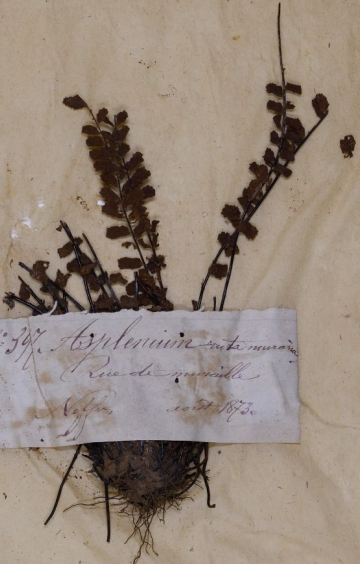 397. Asplenium ruta muraria
Rue de muraille
août 1873.